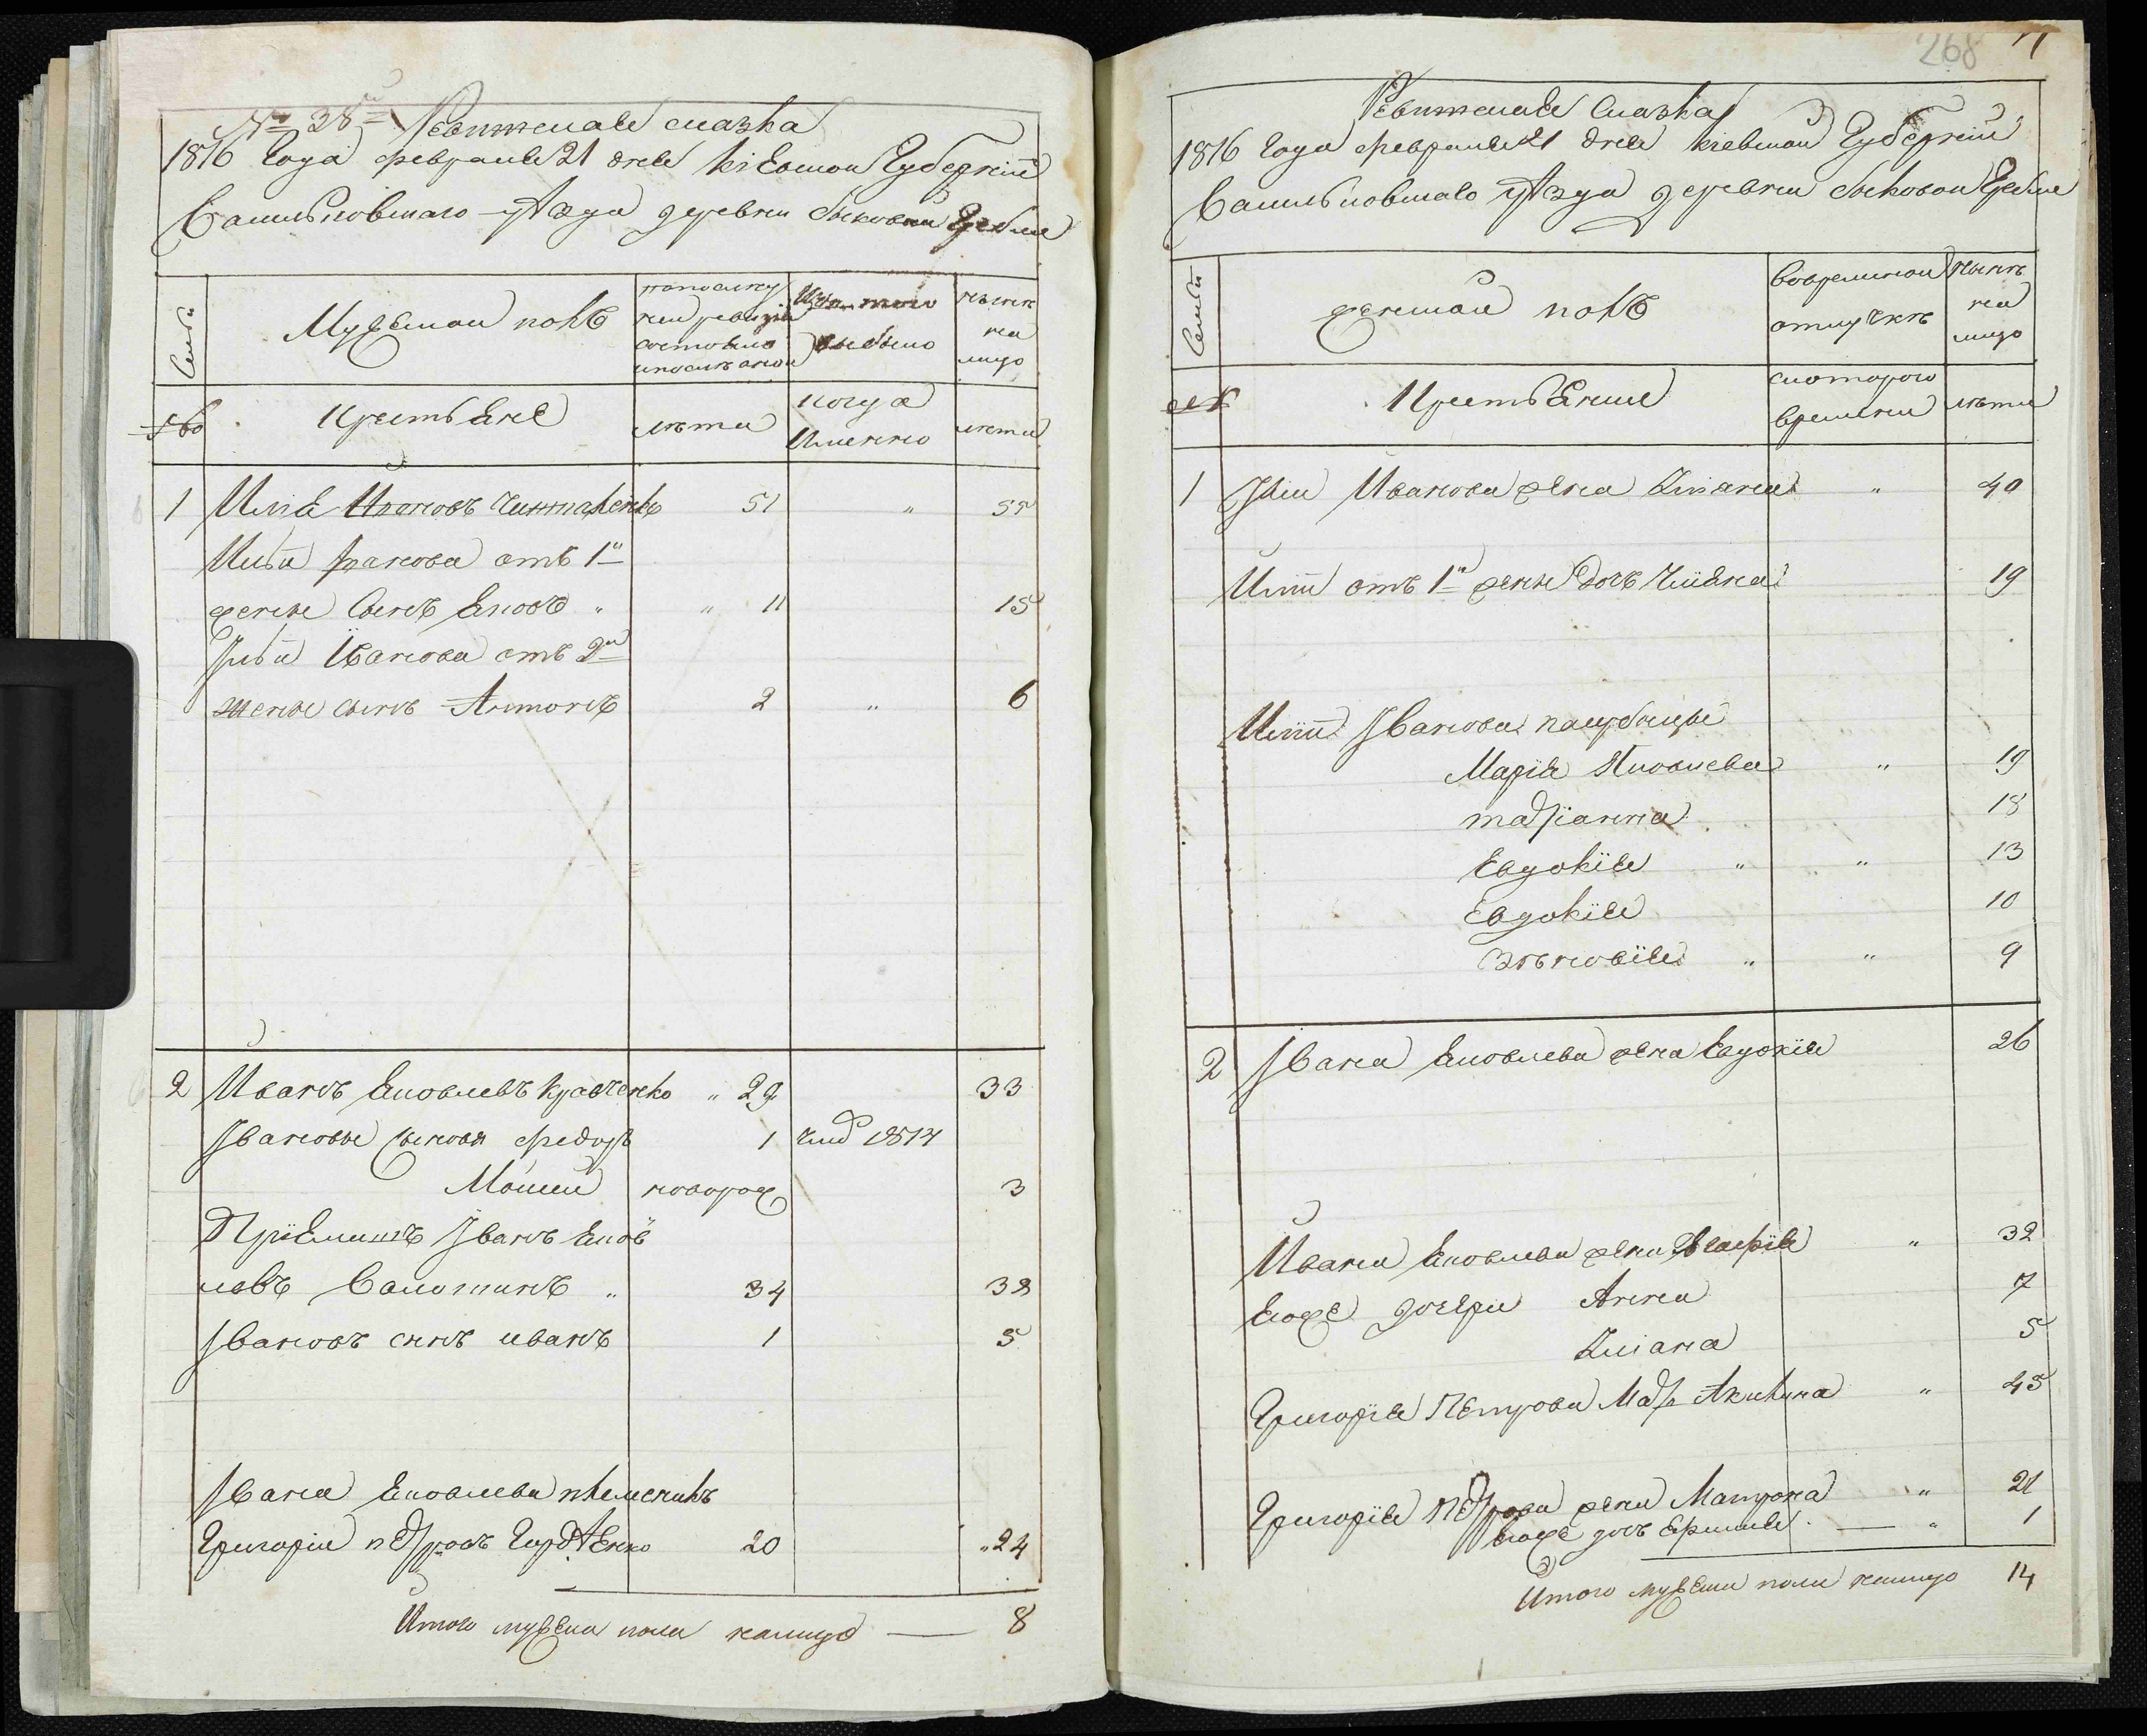 № 38й Ревижская сказка
1816 года февраля 21 дня Кіевской Губерніи
Васильковского уезда деревни Быковой Гребли
Семьи
Мужеской полъ
по последней ревизіи состояло и после оной
Изъ того выбыло
ныне на лицо
Крестьяне
лета
когда именно
лета
1 Илія Ивановъ 51 " 55
Ильи Иванова отъ 1й
жены сынъ Яковъ " " 11 15
Ильи Иванова отъ 2й
жены сынъ Антонъ 2 " 6
2 Иванъ Яковлевъ Кравченко " 29 33
Ивановы сыновя Федоръ 1 1814
Моисей новорож 3
Пріемышъ Иванъ Яков
левъ 34 38
Ивановъ сынъ иванъ 1 5
Ивана Яковлева племеникъ
Григорій петровъ 20 " 24
Итого мужеска пола налицо — 8
268
Ревижская Сказка
1816 года февраля 21 дня Кіевской Губерніи
Васильковского уезда деревни Быковой Гребли
Семьи
Женской полъ
Во временной отлучке
ныне на лицо
Крестьянки
с которого времени
лета
1 Иліи Иванова жена Уліяна " 40
Иліи отъ 1й жены дочь 19
Иліи Иванова
Марія Яковлева " 19
татіанна 18
Евдокія " " 13
Евдокія 10
Зѣновія " " 9
2 Ивана Яковлева жена Евдокія 26
Ивана Яковлева жена " 32
Егоже дочери Анна 7
Уліана 5
Григорія Петрова Мать Акилина " 45
Григорія Петрова жена Матрона " 21
Егоже дочь — " 1
Итого мужеска пола налицо 14